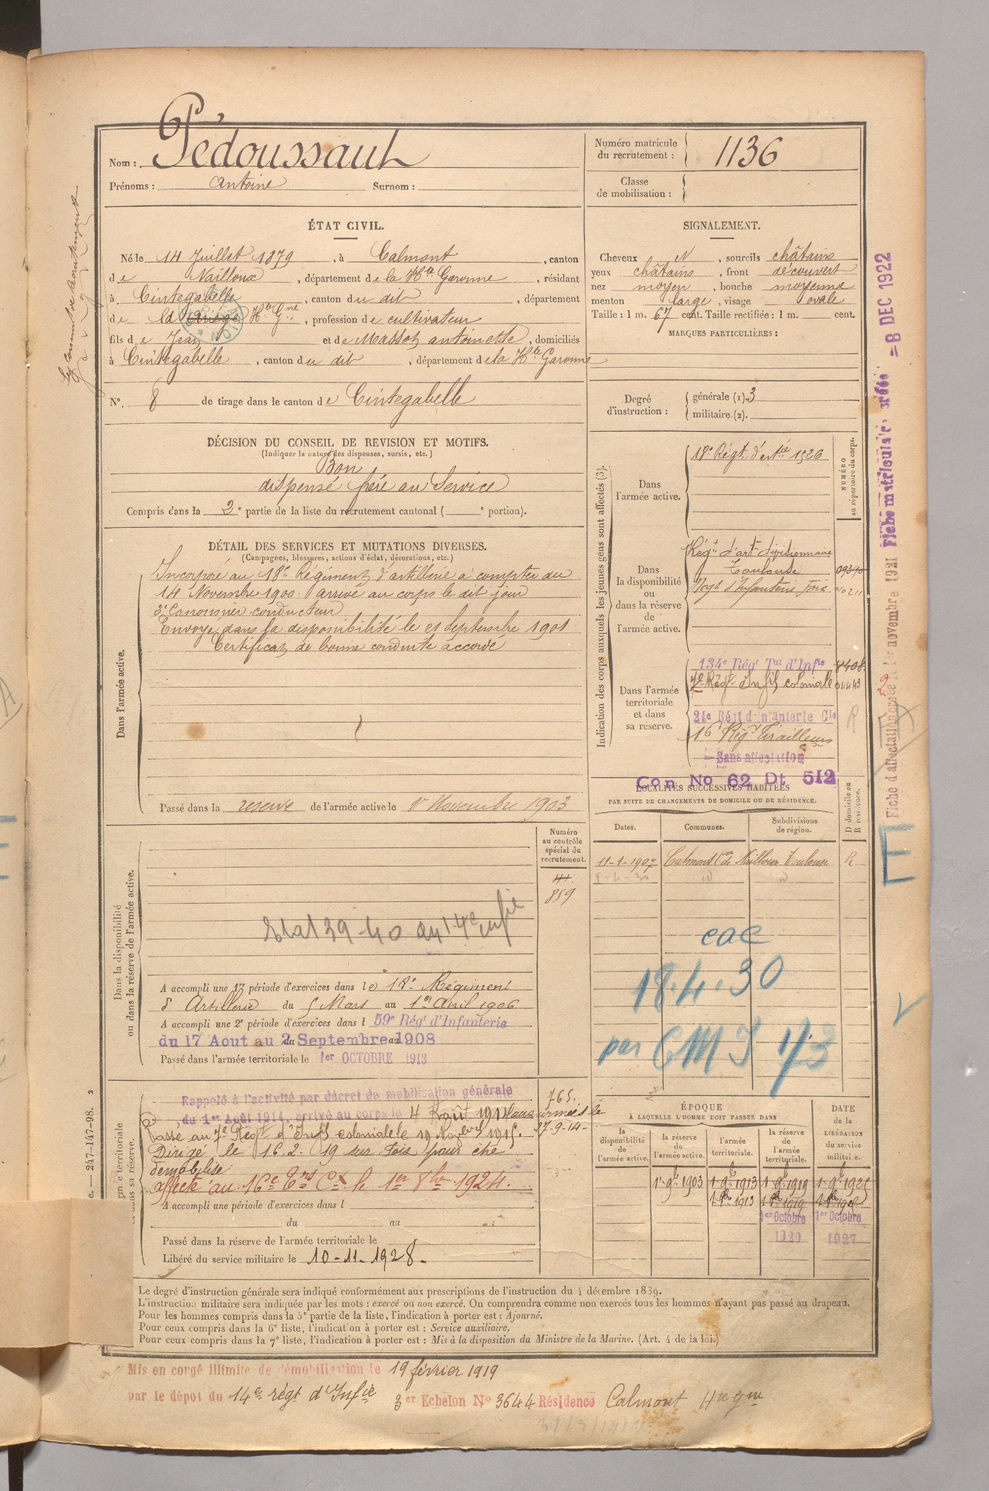 Nom : Pédoussaut
Prénoms : Antoine Surnom :
Numéro matricule du recrutement : 1136
Classe de mobilisation :
ÉTAT CIVIL.
Né le 14 Juillet 1879, à Calmont, canton
de Nailloux, département de la Hte Garonne, résidant
à Cintegabelle, canton du dit, département
de la Ariège Hte Gne, profession de cultivateur
fils de Jean et de Massot antoinette, domiciliés
à Cintegabelle, canton du dit, département de la Hte Garonne
N° 8 de tirage dans le canton de Cintegabelle
SIGNALEMENT.
Cheveux N, sourcils châtains
yeux châtains, front découvert
nez moyen, bouche moyenne
menton large, visage ovale
Taille : 1 m. 67 cent. Taille rectifiée : 1 m. cent.
MARQUES PARTICULIÈRES :
Degré d'instruction : générale (1). 3
militaire (2).
DÉCISION DU CONSEIL DE REVISION ET MOTIFS.
(Indiquer la nature des dispenses, sursis, etc.)
Bon
dispensé frère au Service
Compris dans la 2e partie de la liste du recrutement cantonal ( e portion).
DÉTAIL DES SERVICES ET MUTATIONS DIVERSES.
(Campagnes, blessures, actions d'éclat, décorations, etc.)
Dans l'armée active.
Incorporé au 18e Régiment d'artillerie à compter du
14 Novembre 1900 arrivé au corps le dit jour
2e Canonnier conducteur
Envoyé dans la disponibilité le 21 Septembre 1901
Certificat de bonne conduite accordé
Passé dans la reserve de l'armée active le 1er Novembre 1903
Indication des corps auxquels les jeunes gens sont affectés (3).
NUMÉRO au répertoire du corps.
Dans l'armée active.
18e Régt d'artie 1326
Dans la disponibilité ou dans la réserve de l'armée active.
Régt d'art divisionnaire
Toulouse
Dans l'armée territoriale et dans sa réserve.
134e Rég Tal d'Infie
7e Régt d'infie coloniale
24e Régt d'infanterie Cle
16e Régt Tirailleurs
Sans affectation
Con No 62 Dt 512
LOCALITÉS SUCCESSIVES HABITÉES
PAR SUITE DE CHANGEMENTS DE DOMICILE OU DE RÉSIDENCE.
D domicile ou R résidence.
Dates. Communes. Subdivisions de région.
11-1-1907 Calmont Con Nailloux Toulouse R
cae
18.4.30
par CMI 1/3
Dans la disponibilité ou dans la réserve de l'armée active.
Numéro au contrôle spécial du recrutement.
859
A accompli une 1e période d'exercices dans le 18e Régiment
d'Artillerie du 5 Mars au 1er Avril 1906
A accompli une 2e période d'exercices dans l 59e Rég d'Infanterie
du 17 Aout au 2 Septembre 1908
Passé dans l'armée territoriale le 1er OCTOBRE 1913
Rappelé à l'activité par décret de mobilisation générale
du 1er Août 1914, arrivé au corps le 4 Août 1914
Passé au 7e Régt d'Inf coloniale le 19 Novbre 1915.
Dirigé le 16.2.19 sur Foix pour être
démobilisé
affecté au 16e
A accompli une période d'exercices dans l
du au
Passé dans la réserve de l'armée territoriale le
Libéré du service militaire le 10-11-1928.
765
27-9-14
ÉPOQUE
À LAQUELLE L'HOMME DOIT PASSER DANS
DATE de la LIBÉRATION du service militaire.
la disponibilité de l'armée active. la réserve de l'armée active. l'armée territoriale. la réserve de l'armée territoriale.
1er Octobre 1920 1er Octobre 1927
Le degré d'instruction générale sera indiqué conformément aux prescriptions de l'instruction du 4 décembre 1889.
L'instruction militaire sera indiquée par les mots : exercé ou non exercé. On comprendra comme non exercés tous les hommes n'ayant pas passé au drapeau.
Pour les hommes compris dans la 5e partie de la liste, l'indication à porter est : Ajourné.
Pour ceux compris dans la 6e liste, l'indication à porter est : Service auxiliaire.
Pour ceux compris dans la 7e liste, l'indication à porter est : Mis à la disposition du Ministre de la Marine. (Art. 4 de la loi)
Mis en congé illimité de démobilisation le 19 février 1919
par le dépôt du 14e régt d'Infie 3er Echelon No 3644 Résidence Calmont Hte Gne
Fiche d'affectation créée le 1er novembre 1921
Fiche matricule créée = 8 DEC 1922
247-147-98.